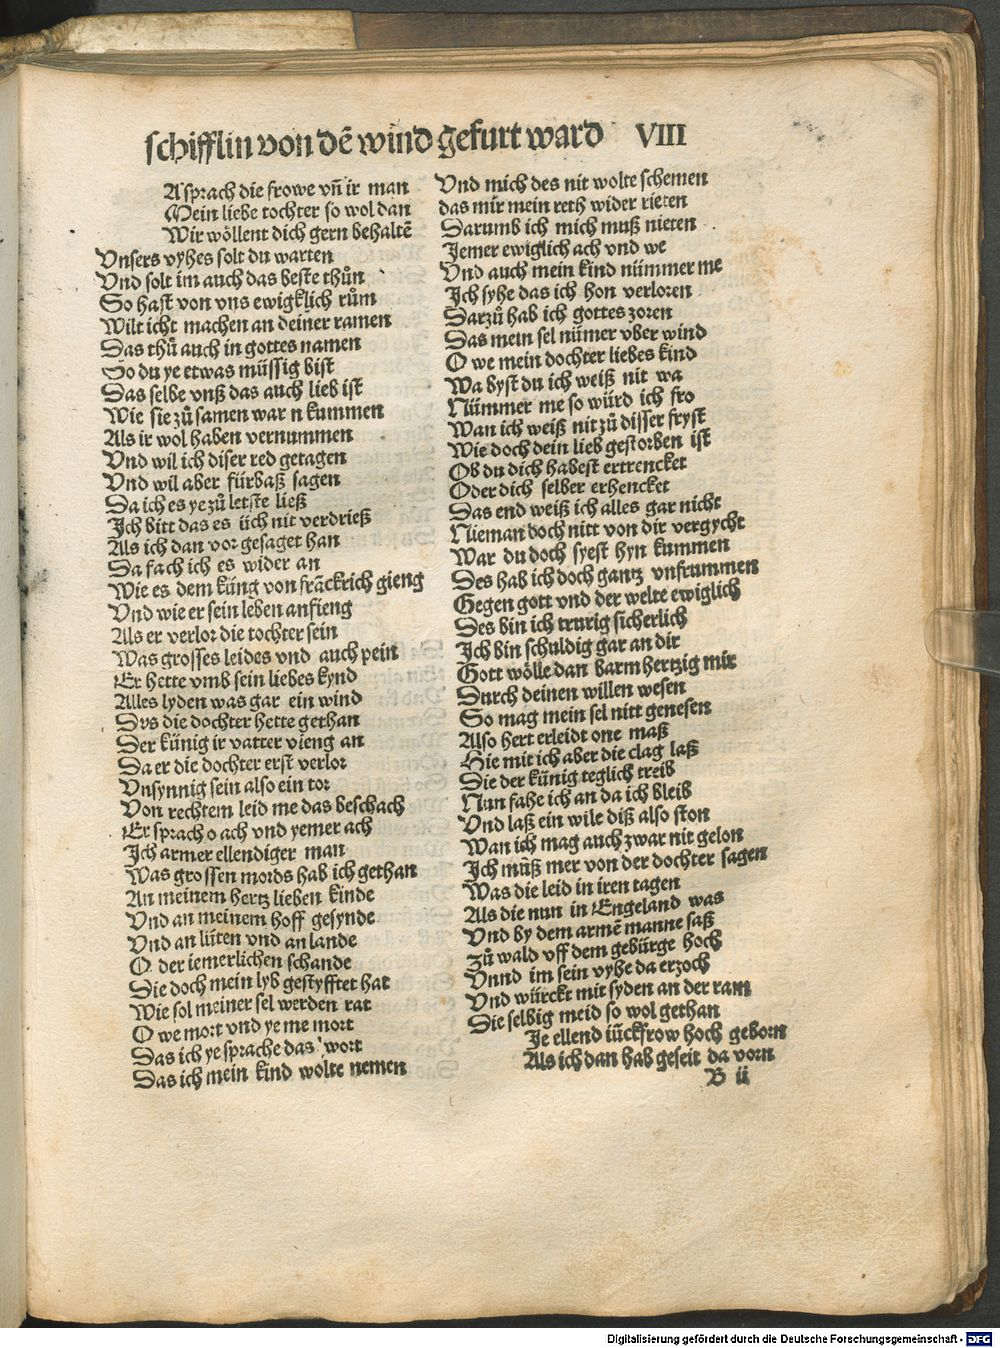 schifflin von dē wind gefurt ward VIII
A sprach die frowe vn̄ ir man
Mein liebe tochter so wol dan
Wir wöllent dich gern behaltē
Vnsers vyhes solt du warten
Vnd solt im auch das beste thůn
So hast von vns ewigklich rům
Wilt icht machen an deiner ramen
Das thů auch in gottes namen
So du ye etwas müssig bist
Das selbe vnß das auch lieb ist
Wie sie zů samen war n kummen
Als ir wol haben vernummen
Vnd wil ich diser red getagen
Vnd wil aber fürbaß sagen
Da ich es ye zů letste ließ
Ich bitt das es üch nit verdrieß
Als ich dan vor gesaget han
Da fach ich es wider an
Wie es dem küng von frāckrich gieng
Vnd wie er sein leben anfieng
Als er verlor die tochter sein
Was grosses leides vnd auch pein
Er hette vmb sein liebes kynd
Alles lyden was gar ein wind
Dvs die dochter hette gethan
Der künig ir vatter vieng an
Da er die dochter erst verlor
Vnsynnig sein also ein tor
Von rechtem leid me das beschach
Er sprach o ach vnd yemer ach
Ich armer ellendiger man
Was grossen mords hab ich gethan
An meinem hertz lieben kinde
Vnd an meinem hoff gesynde
Vnd an lüten vnd an lande
O der iemerlichen schande
Die doch mein lyb gestyfftet hat
Wie sol meiner sel werden rat
O we mort vnd ye me mort
Das ich ye sprache das wort
Das ich mein kind wolte nemen
Vnd mich des nit wolte schemen
das mir mein reth wider rieten
Darumb ich mich muß nieten
Jemer ewiglich ach vnd we
Vnd auch mein kind nümmer me
Ich syhe das ich hon verloren
Darzů hab ich gottes zoren
Das mein sel nümer vber wind
O we mein dochter liebes kind
Wa byst du ich weiß nit wa
Nümmer me so würd ich fro
Wan ich weiß nit zů disser fryst
Wie doch dein lieb gestorben ist
Ob du dich habest ertrencket
Oder dich selber erhencket
Das end weiß ich alles gar nicht
Nieman doch nitt von dir vergycht
War du doch syest hyn kummen
Des hab ich doch gantz vnfrummen
Gegen gott vnd der welte ewiglich
Des bin ich trurig sicherlich
Ich bin schuldig gar an dir
Gott wölle dan barmhertzig mir
Durch deinen willen wesen
So mag mein sel nitt genesen
Also hert erleidt one maß
Hie mit ich aber die clag laß
Die der künig teglich treib
Nun fahe ich an da ich bleib
Vnd laß ein wile diß also ston
Wan ich mag auch zwar nit gelon
Ich můß mer von der dochter sagen
Was die leid in iren tagen
Als die nun in Engeland was
Vnd by dem armē manne saß
zů wald vff dem gebürge hoch
Vnnd im sein vyhe da erzoch
Vnd würckt mit syden an der ram
Die selbig meid so wol gethan
Je ellend iückfrow hoch geborn
Als ich dan hab geseit da vorn
B ii
Digitalisierung gefördert durch die Deutsche Forschungsgemeinschaft - DFG